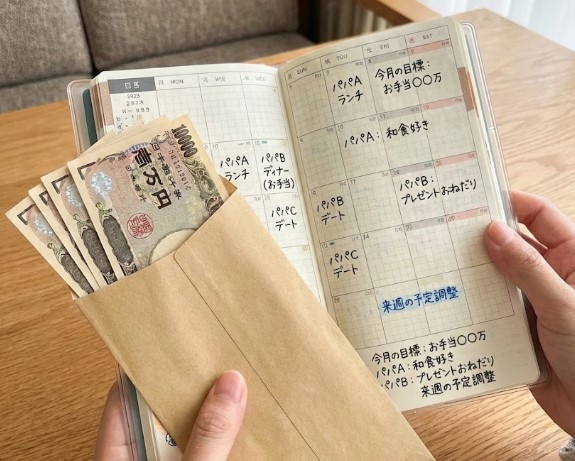 10000
壱万円
日
MON
WED
パパA
ランチ
パパB
ディナー
(お手当)
パパC
デート
SUN
TOU
FRI
SAT
パパA
ランチ
今月の目標：
お手当〇〇万
パパA：和食好き
パパB
デート
パパB：
プレゼントおねだり
パパC
デート
来週の予定調整
今月の目標：お手当〇〇万
パパA：和食好き
パパB：プレゼントおねだり
来週の予定調整